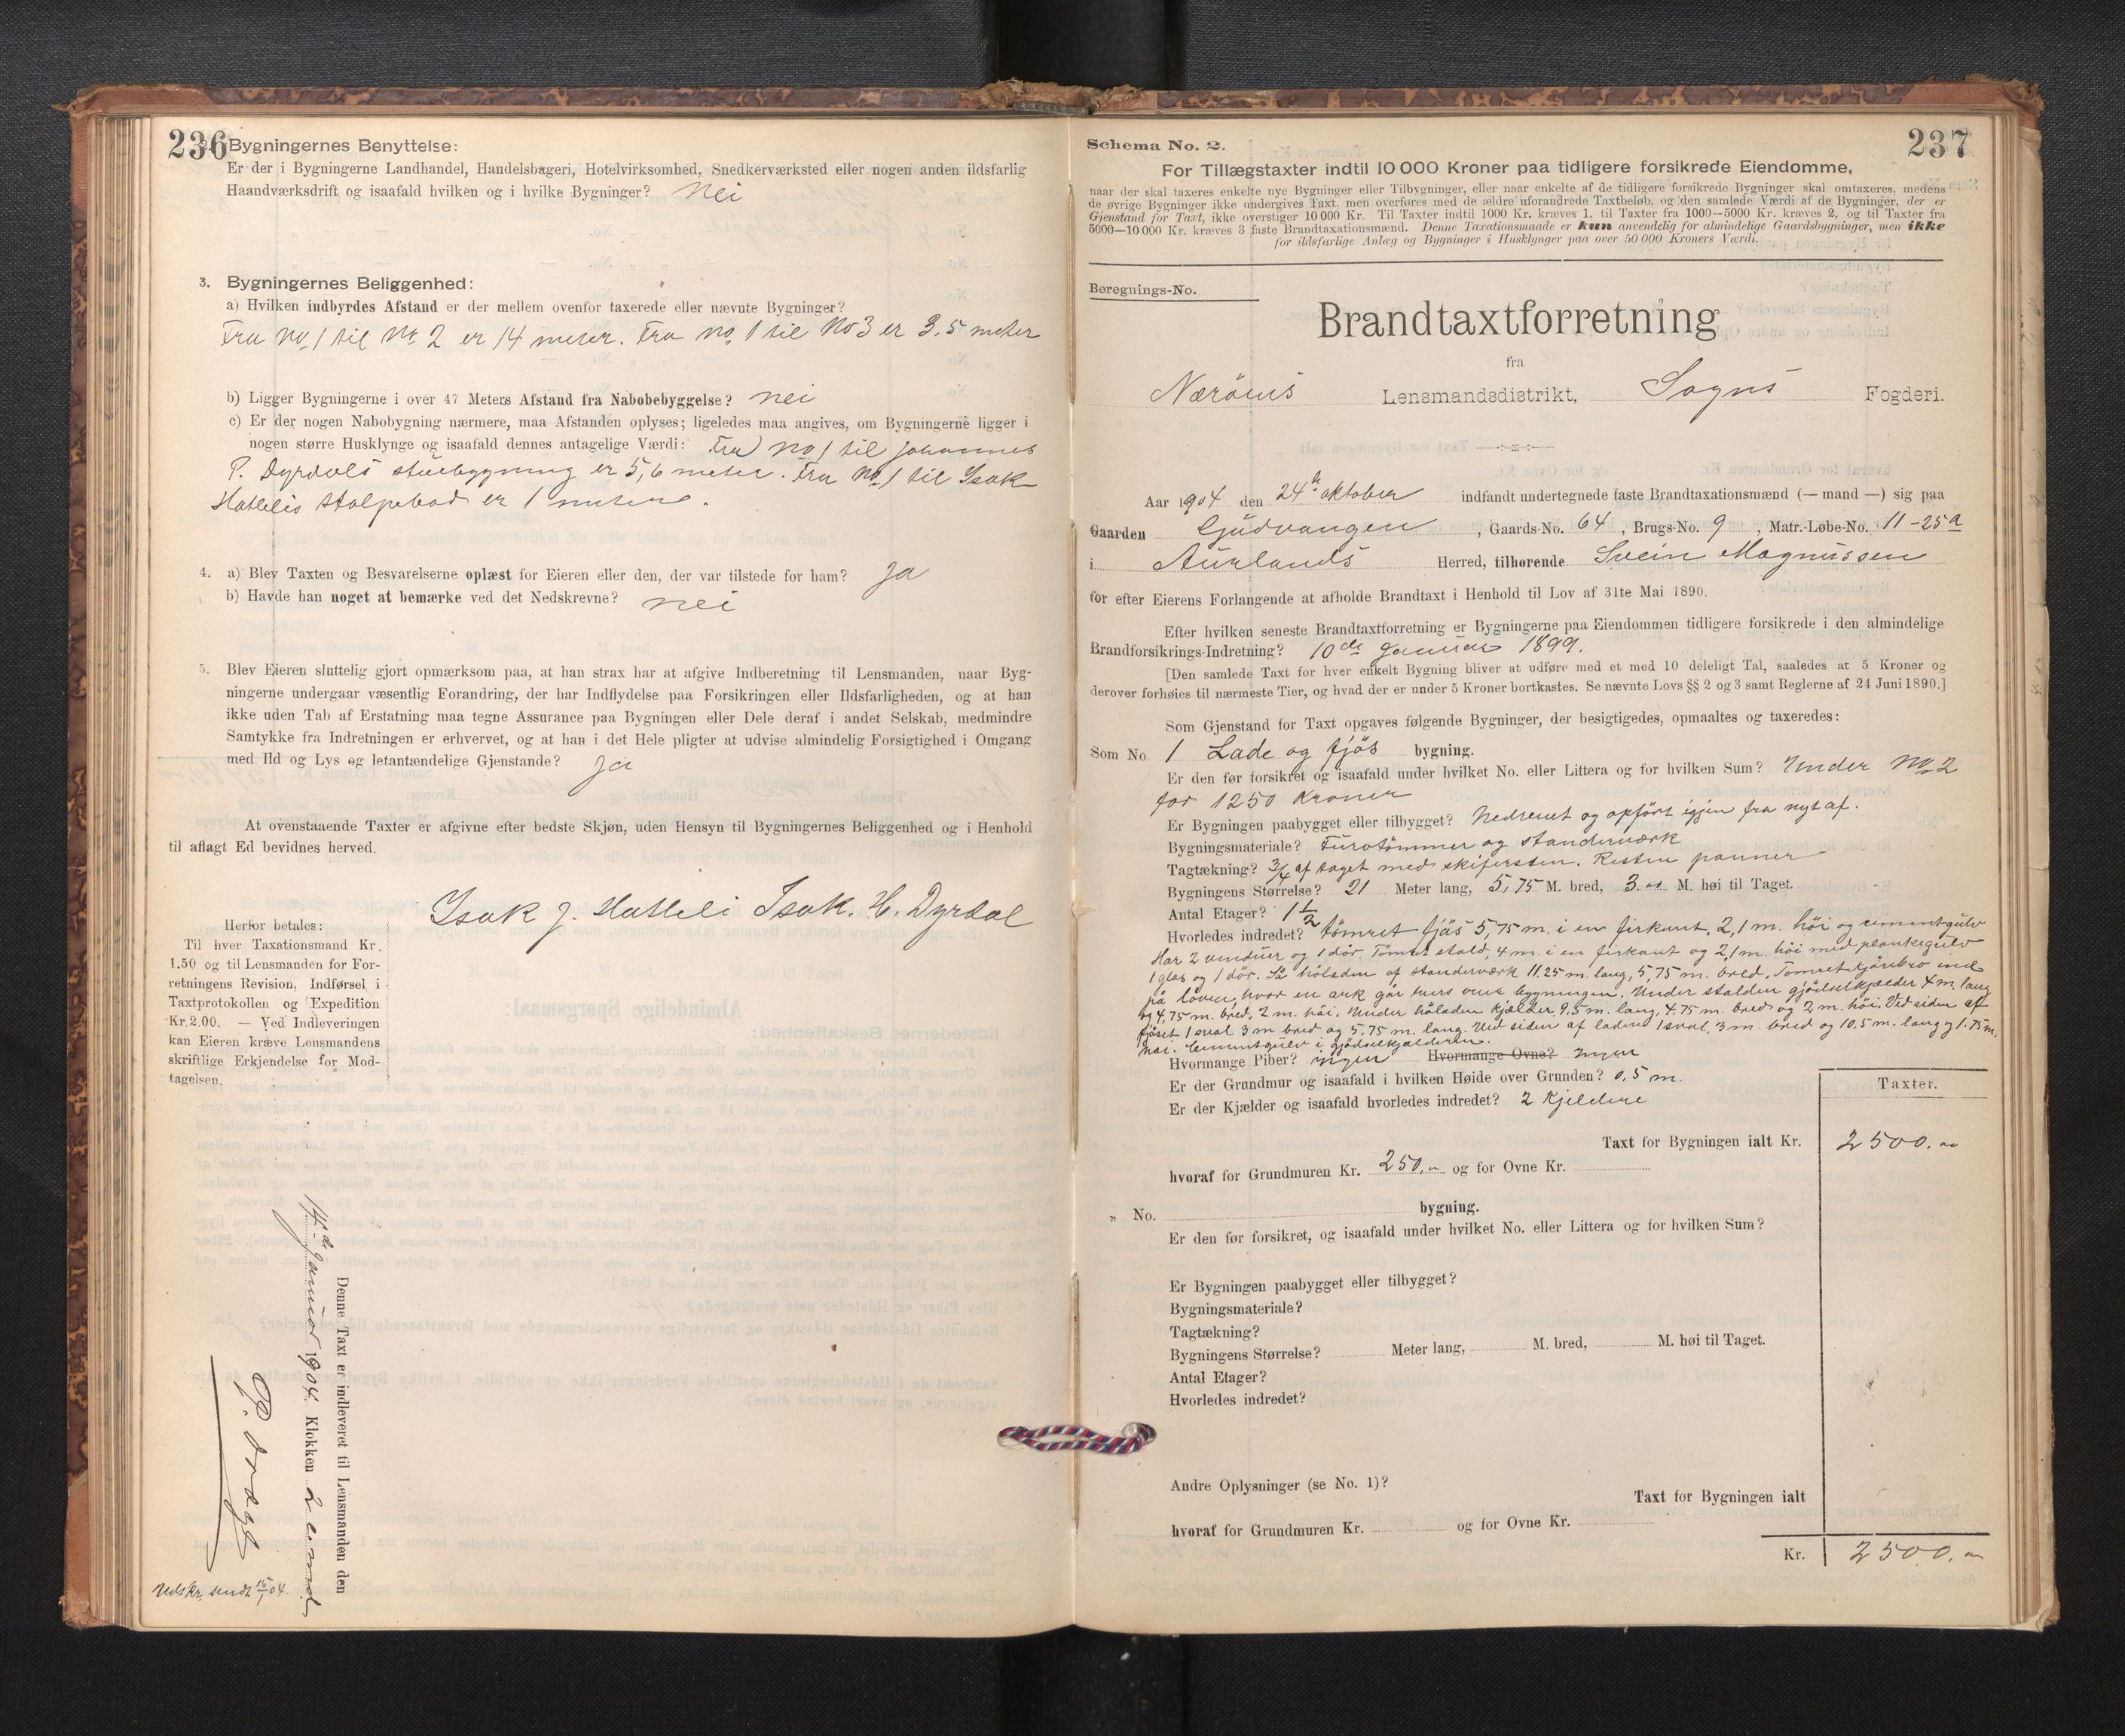 236
Bygningernes Benyttelse:
Er der i Bygningerne Landhandel, Handelsbageri, Hotelvirksomhed, Snedkerværksted eller nogen anden ildsfarlig
Haandværksdrift og isaafald hvilken og i hvilke Bygninger? Nei
3. Bygningernes Beliggenhed:
a) Hvilken indbyrdes Afstand er der mellem ovenfor taxerede eller nævnte Bygninger?
Fra No 1 til No 2 er 14 meter. Fra No 1 til No 3 er 3,5 meter
b) Ligger Bygningerne i over 47 Meters Afstand fra Nabobebyggelse? Nei
c) Er der nogen Nabobygning nærmere, maa Afstanden oplyses; ligeledes maa angives, om Bygningerne ligger i
nogen større Husklynge og isaafald dennes antagelige Værdi: Fra No 1 til Johannes
P. Dyrdals stuebygning er 5,6 meter. Fra No 1 til Isak
Hatlelis stolpebod er 1 meter.
4. a) Blev Taxten og Besvarelserne oplæst for Eieren eller den, der var tilstede for ham? Ja
b) Havde han noget at bemærke ved det Nedskrevne? Nei
5. Blev Eieren sluttelig gjort opmærksom paa, at han strax har at afgive Indberetning til Lensmanden, naar Byg-
ningerne undergaar væsentlig Forandring, der har Indflydelse paa Forsikringen eller Ildsfarligheden, og at han
ikke uden Tab af Erstatning maa tegne Assurance paa Bygningen eller Dele deraf i andet Selskab, medmindre
Samtykke fra Indretningen er erhvervet, og at han i det Hele pligter at udvise almindelig Forsigtighed i Omgang
med Ild og Lys og letantændelige Gjenstande? Ja
At ovenstaaende Taxter er afgivne efter bedste Skjøn, uden Hensyn til Bygningernes Beliggenhed og i Henhold
til aflagt Ed bevidnes herved.
Isak J. Hatleli Isak. H. Dyrdal
Herfor betales:
Til hver Taxationsmand Kr.
1.50 og til Lensmanden for For-
retningens Revision, Indførsel i
Taxtprotokollen og Expedition
Kr. 2.00. — Ved Indleveringen
kan Eieren kræve Lensmandens
skriftlige Erkjendelse for Mod-
tagelsen.
Denne Taxt er indleveret til Lensmanden den
14de Januar 1904. Klokken 2 em
Udskr. sendt 15/1 04.
237
Schema No. 2.
For Tillægstaxter indtil 10 000 Kroner paa tidligere forsikrede Eiendomme,
naar der skal taxeres enkelte nye Bygninger eller Tilbygninger, eller naar enkelte af de tidligere forsikrede Bygninger skal omtaxeres, medens
de øvrige Bygninger ikke undergives Taxt, men overføres med de ældre uforandrede Taxtbeløb, og den samlede Værdi af de Bygninger, der er
Gjenstand for Taxt, ikke overstiger 10 000 Kr. Til Taxter indtil 1000 Kr. kræves 1, til Taxter fra 1000—5000 Kr. kræves 2, og til Taxter fra
5000—10 000 Kr. kræves 3 faste Brandtaxationsmænd. Denne Taxationsmaade er kun anvendelig for almindelige Gaardsbygninger, men ikke
for ildsfarlige Anlæg og Bygninger i Husklynger paa over 50 000 Kroners Værdi.
Beregnings-No.
Brandtaxtforretning
fra
Nærøens Lensmandsdistrikt, Sogns Fogderi.
Aar 1904 den 24de oktober indfandt undertegnede faste Brandtaxationsmænd (— mand —) sig paa
Gaarden Gudvangen, Gaards-No. 64, Brugs-No. 9, Matr.-Løbe-No. 11-25a
i Aurlands Herred, tilhørende Svein Magnussen
for efter Eierens Forlangende at afholde Brandtaxt i Henhold til Lov af 31te Mai 1890.
Efter hvilken seneste Brandtaxtforretning er Bygningerne paa Eiendommen tidligere forsikrede i den almindelige
Brandforsikrings-Indretning? 10de Januar 1899.
[Den samlede Taxt for hver enkelt Bygning bliver at udføre med et med 10 deleligt Tal, saaledes at 5 Kroner og
derover forhøies til nærmeste Tier, og hvad der er under 5 Kroner bortkastes. Se nævnte Lovs §§ 2 og 3 samt Reglerne af 24 Juni 1890.]
Som Gjenstand for Taxt opgaves følgende Bygninger, der besigtigedes, opmaaltes og taxeredes:
Som No. 1 Lade og fjøs bygning.
Er den før forsikret og isaafald under hvilket No. eller Littera og for hvilken Sum? Under No 2
for 1250 Kroner
Er Bygningen paabygget eller tilbygget? Nedrevet og opført igjen fra nyt af.
Bygningsmateriale? Furutømmer og standerværk
Tagtækning? 3/4 af taget med skifersten. Resten panner
Bygningens Størrelse? 21 Meter lang, 5,75 M. bred, 3.00 M. høi til Taget.
Antal Etager? 1 1/2
Hvorledes indredet? tømret fjøs 5,75 m. i en firkant, 2,1 m. høi og cementgulv
Har 2 vinduer og 1 dør. Tømret stald, 4 m. i en firkant og 2,1 m. høi med plankegulv
1 glas og 1 dør. Så høladen af standerværk 11,25 m. lang, 5,75 m. bred, Tømret kjørebro ind
på låven, hvor en ark går tvers over bygningen. Under stalden gjødselkjælder 4 m. lang
og 4,75 m. bred, 2 m. høi. Under høladen kjælder 9,5 m. lang, 4.75 m. bred og 2 m. høi. Ved siden af
fjøset 1 sval 3 m bred og 5,75 m. lang. Ved siden af laden 1 sval, 3 m. bred og 10,5 m. lang og 1.75 m.
høi. Cementgulv i gjødselkjælderen.
Hvormange Piber? ingen Hvormange Ovne? ingen
Er der Grundmur og isaafald i hvilken Høide over Grunden? 0,5 m.
Er der Kjælder og isaafald hvorledes indredet? 2 Kjeldere
Taxter.
Taxt for Bygningen ialt Kr. 2500.00
hvoraf for Grundmuren Kr. 250.00 og for Ovne Kr.
„ No. bygning.
Er den før forsikret, og isaafald under hvilket No. eller Littera og for hvilken Sum?
Er Bygningen paabygget eller tilbygget?
Bygningsmateriale?
Tagtækning?
Bygningens Størrelse? Meter lang, M. bred, M. høi til Taget.
Antal Etager?
Hvorledes indredet?
Andre Oplysninger (se No. 1)?
Taxt for Bygningen ialt
hvoraf for Grundmuren Kr. og for Ovne Kr.
Kr. 2500.00